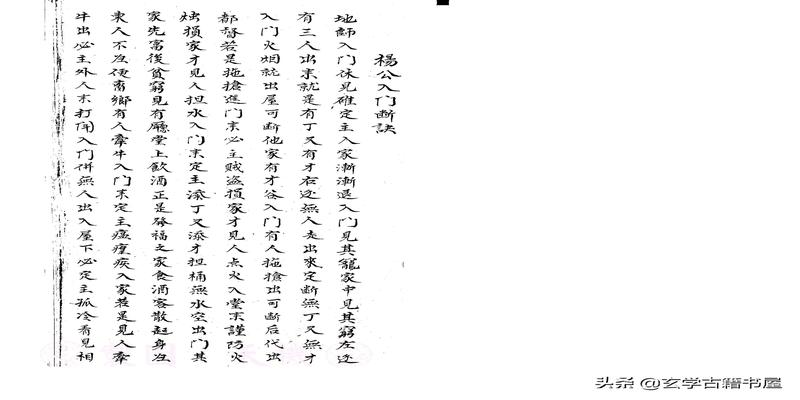 楊公入门断訣
地師入门保見碓定主入家漸漸退入门見其籠家中見其窮左边
有三人出來就是有丁又有才右边無人走出來定断無丁又無才
入门火烟就出屋可断他家有才谷入门有人拖搶出可断后代出
都督若是拖搶進门來必主贼盗損家才見人点火入堂來謹防火
燭損家才見人担水入门來定主添丁又添才担桶無水空出门其
家先富後貧窮見有廳堂上飲酒正是發福之家食酒客散起身如
東人不在便畜鄉有人牽牛入门來定主瘟㾮疾入家若是見入牽
牛出必主外人來打伤入门併無人出入屋下必定主孤冷看見相
头条 @玄学古籍书屋